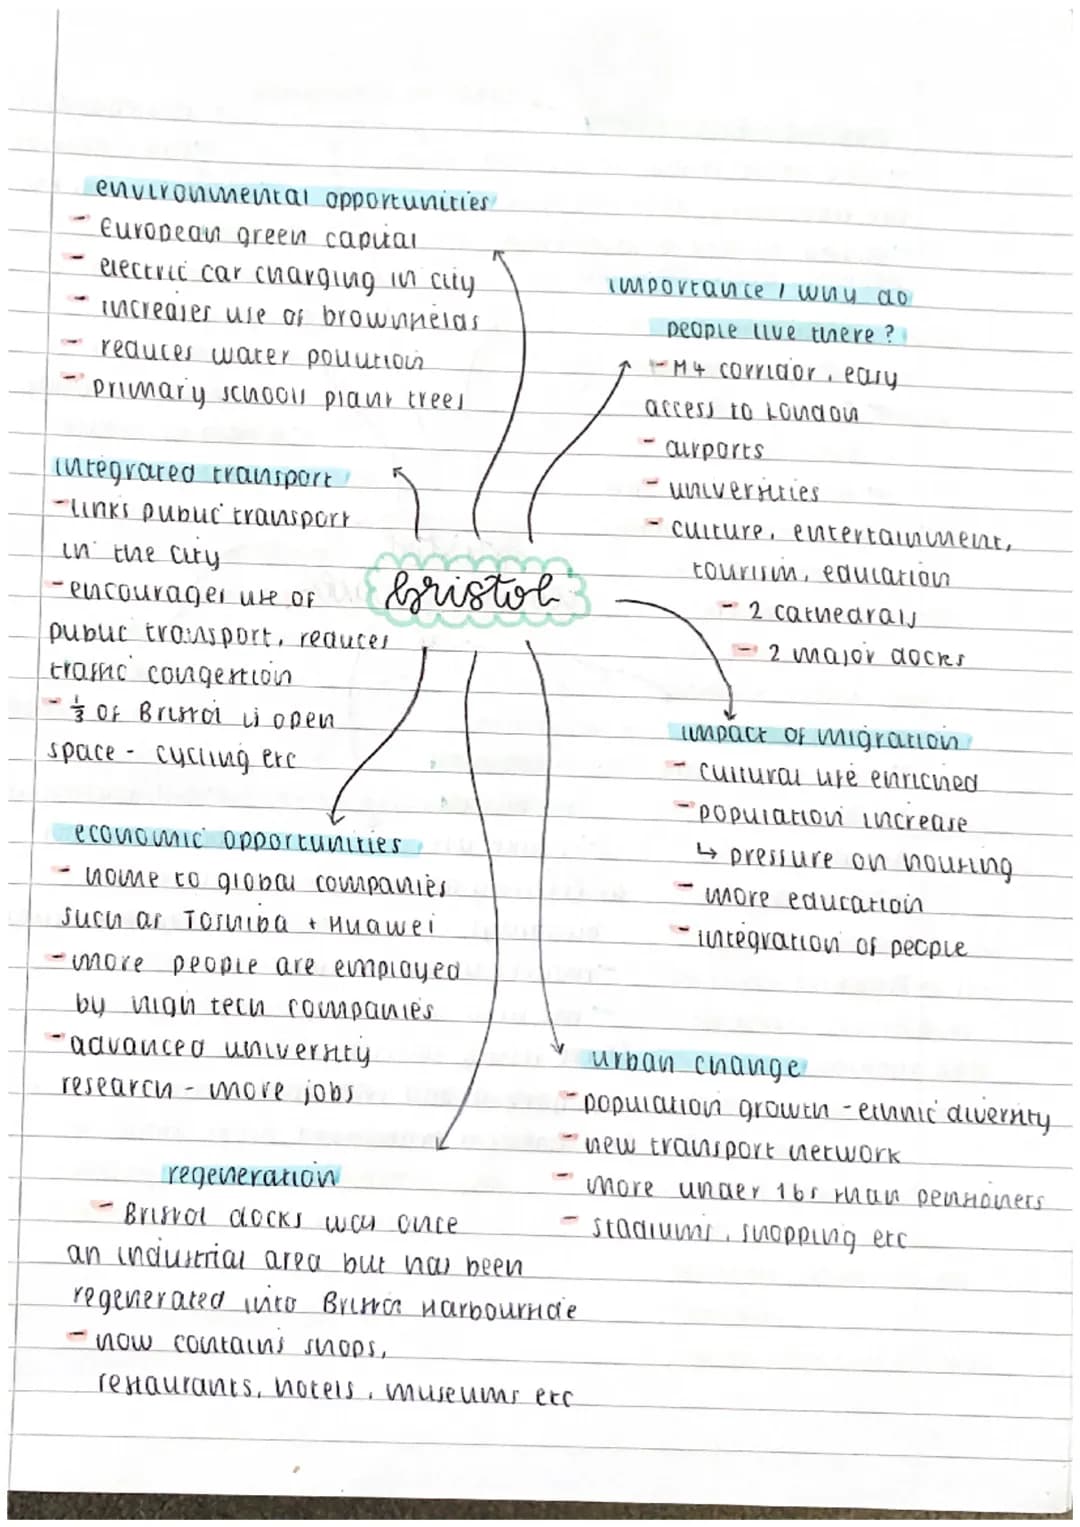 environmental opportunities
- European green capital
- electric car charging in city
- increases use of brownfields
- reduces water pollution
- primary schools plant trees
importance / why do
people live there?
- M4 corridor, easy
access to London
- airports
- universities
- culture, entertainment,
tourism, education
- 2 cathedrals
- 2 major docks
integrated transport
- links public transport
in the city
- encourages use of
public transport, reduces
traffic congestion
- 1/3 of Bristol is open
space - cycling etc
bristol
impact of migration
- cultural life enriched
- population increase
↳ pressure on housing
- more education
- integration of people
economic opportunities
- home to global companies
such as Toshiba + Huawei
- more people are employed
by high tech companies
- advanced university
research - more jobs
urban change
- population growth - ethnic diversity
- new transport network
- more under 16s than pensioners
- stadiums, shopping etc
regeneration
- Bristol docks was once
an industrial area but has been
regenerated into Bristol Harbourside
- now contains shops,
restaurants, hotels, museums etc